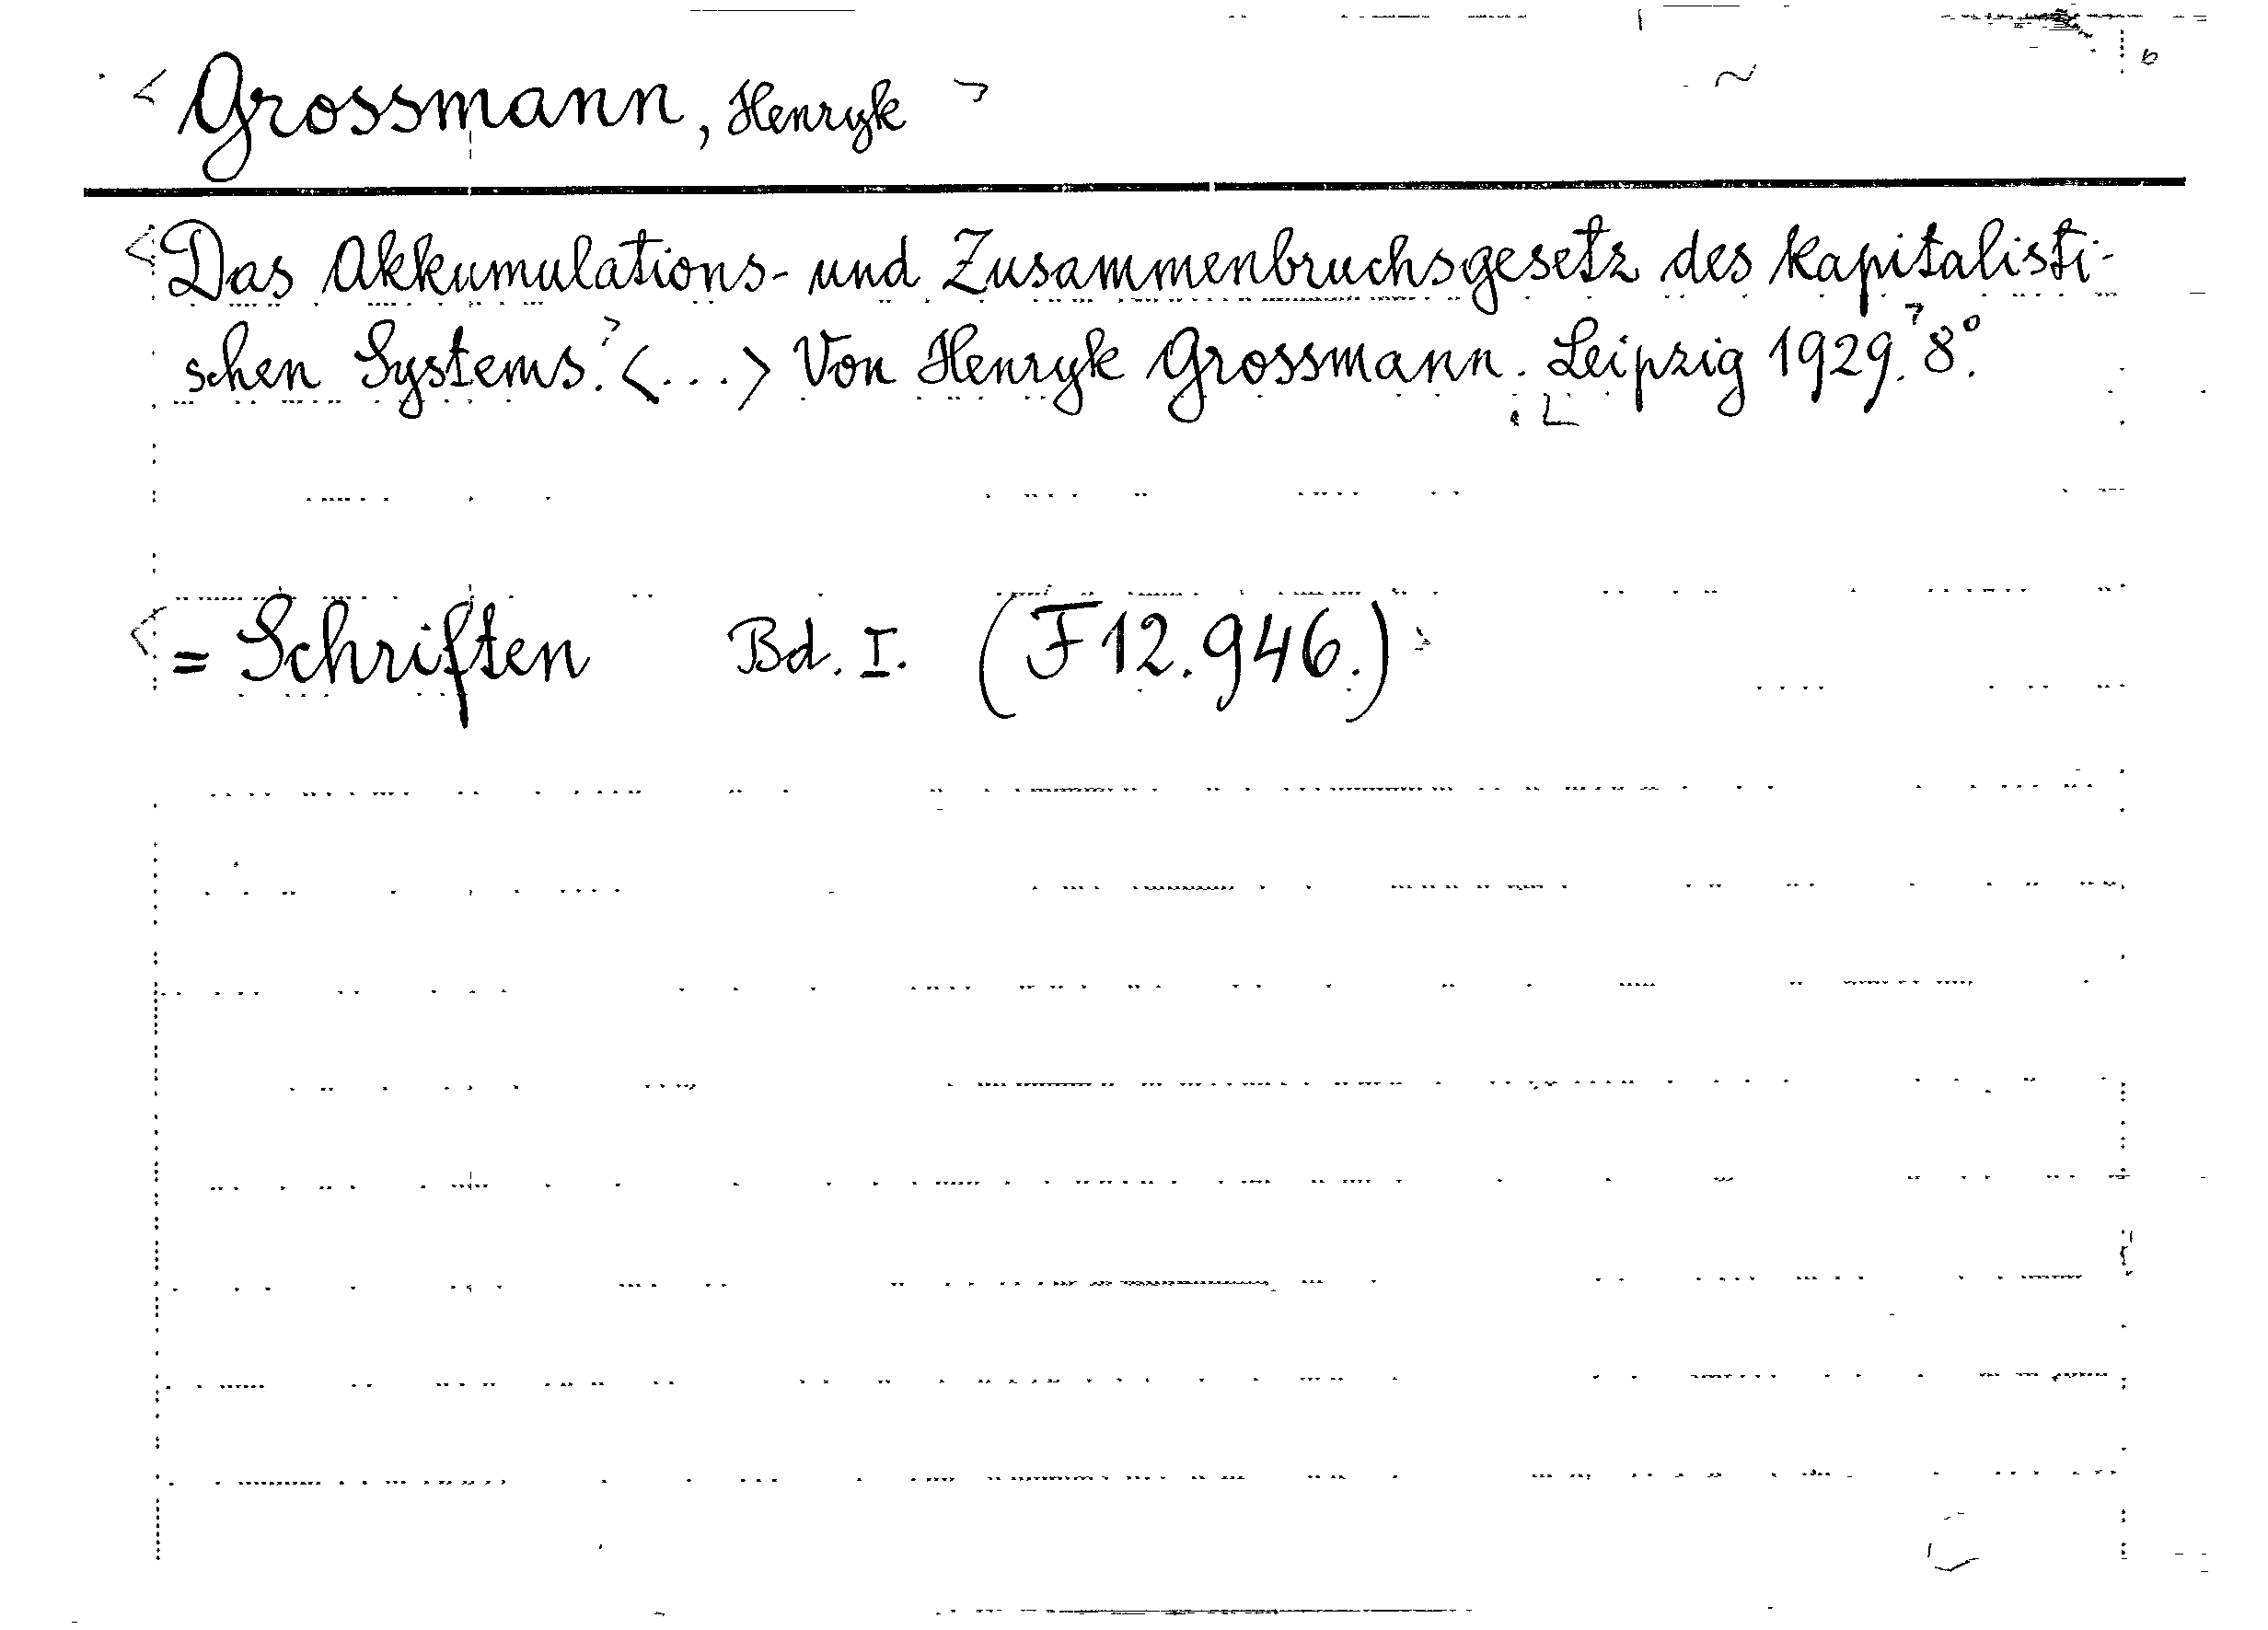 Grossmann, Henryk
Das Akkumulations- und Zusammenbruchsgesetz des kapitalisti-
schen Systems. <...> Von Henryk Grossmann. Leipzig 1929. 8°.
= Schriften Bd. I. (F 12.946.)